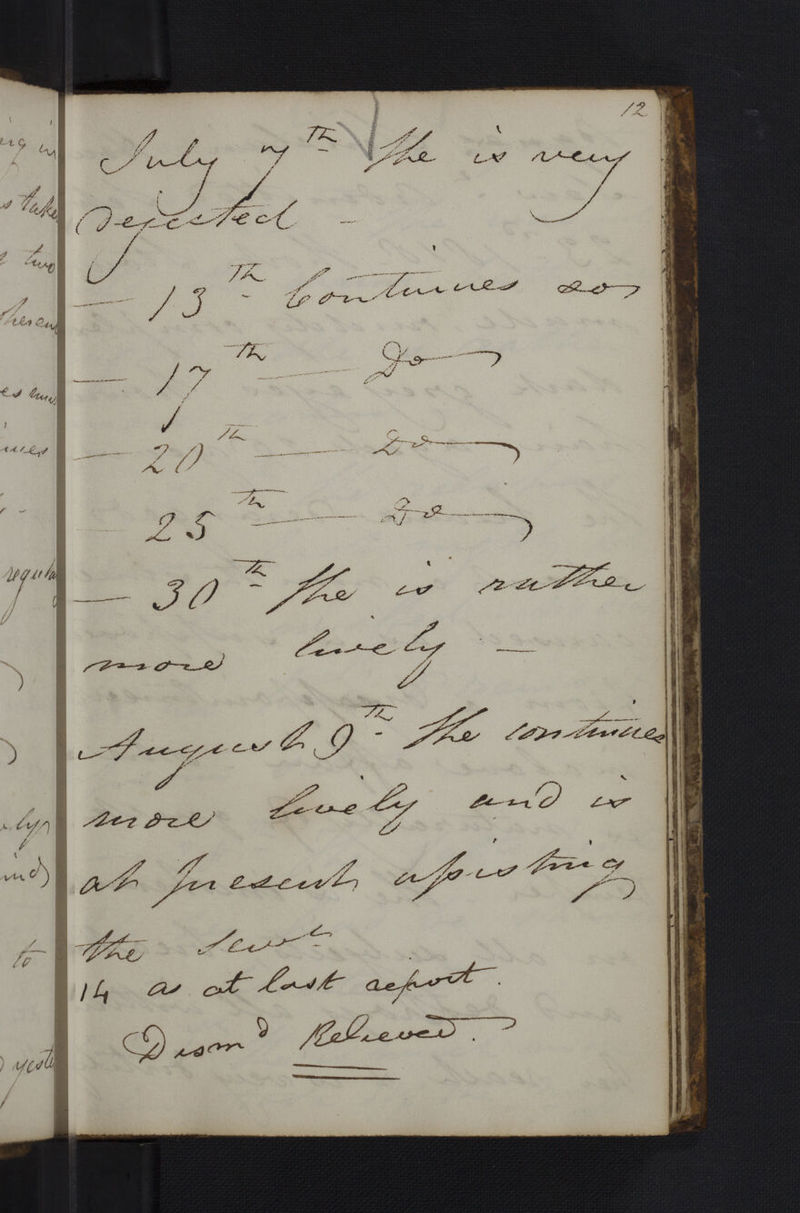 12
July 7th She is very
dejected -
— 13th Continues so
— 17th — Do
— 20th — Do
— 25th — Do
— 30th She is rather
more lively —
August 9th She continues
more lively and is
at present assisting
the Servt
14 as at last report.
Dismd Relieved.
two
to